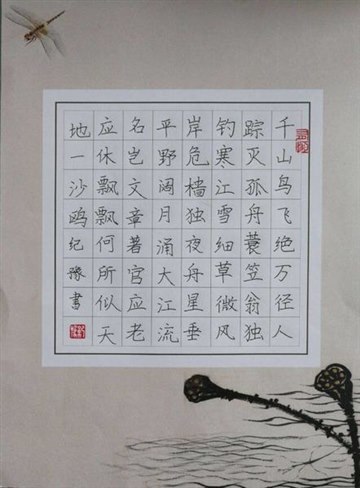 千山鸟飞绝万径人
踪灭孤舟蓑笠翁独
钓寒江雪细草微风
岸危樯独夜舟星垂
平野阔月涌大江流
名岂文章著官应老
应休飘飘何所似天
地一沙鸥纪豫书